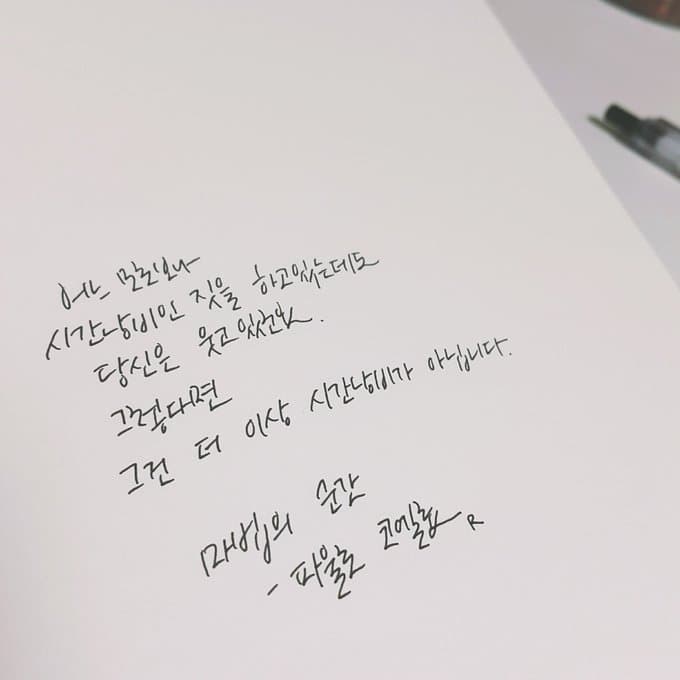 어느 모로보나
시간낭비인 짓을 하고있는데도
당신은 웃고있군요.
그렇다면
그건 더 이상 시간낭비가 아닙니다.
마법의 순간
- 파울로 코엘료 R